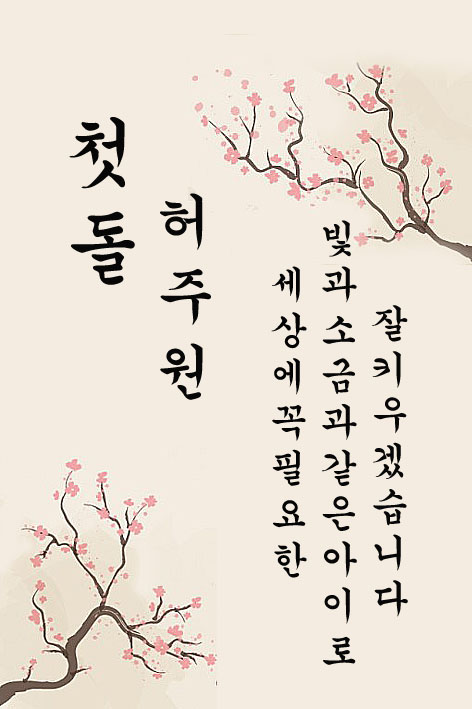 첫돌
허주원
세상에꼭필요한
빛과소금과같은아이로
잘키우겠습니다